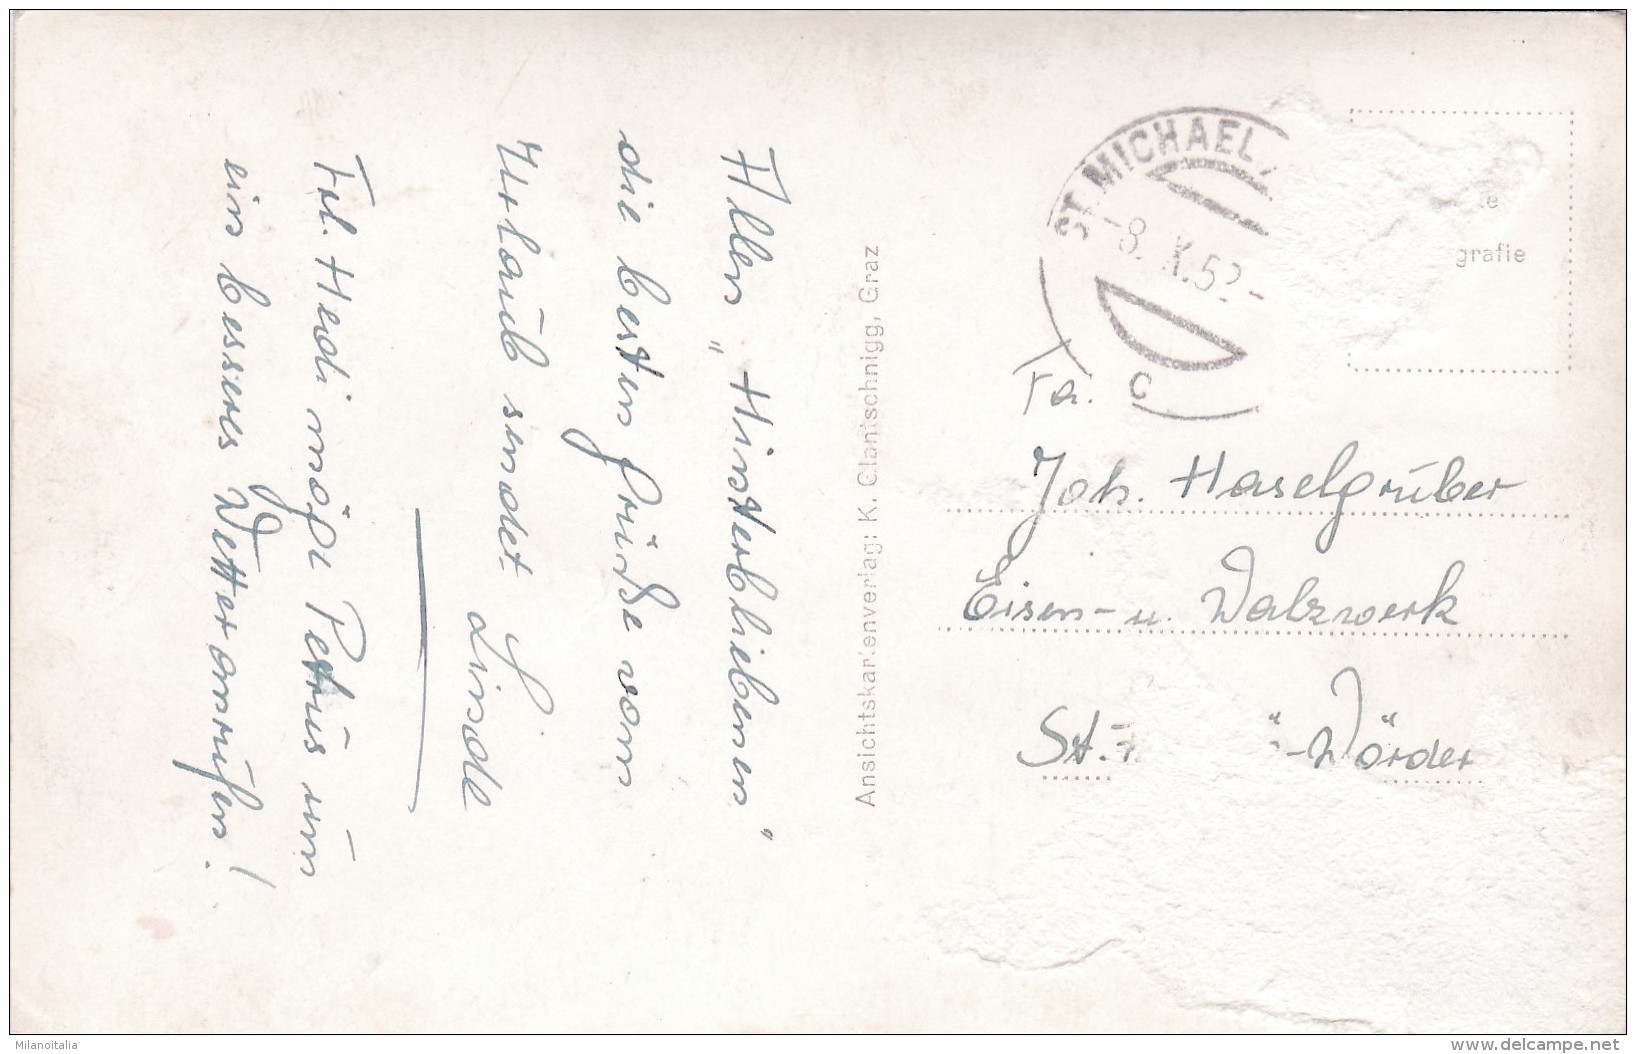 Allen „Hinterbliebenen"
die besten Grüße vom
Urlaub sendet
Linde
Frl. Hedi möge Petrus um
ein besseres Wetter anrufen!
Ansichtskartenverlag: K. Glantschnigg, Graz
ST. MICHAEL
-8. X. 52-
c
grafie
Fa.
Joh. Haselgrüber
Eisen- u. Walzwerk
St. -Wörder
Milanoitalia
www.delcampe.net